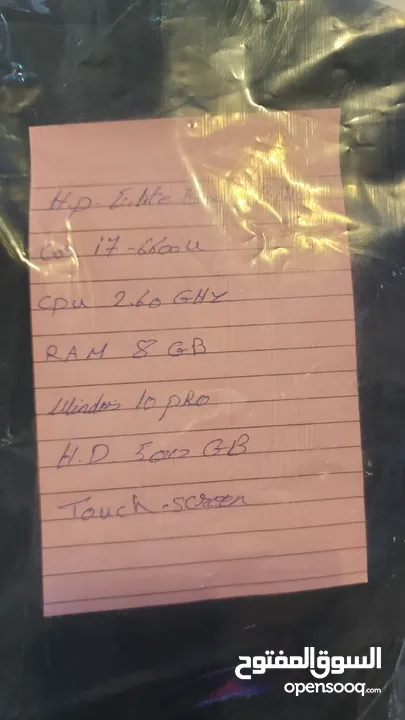 H.p. Elite
Cor i7-6600U
CPU 2.60 GHz
RAM 8 GB
Windows 10 PRO
H.D. 500 GB
Touch-screen
السوق المفتوح
opensooq.com